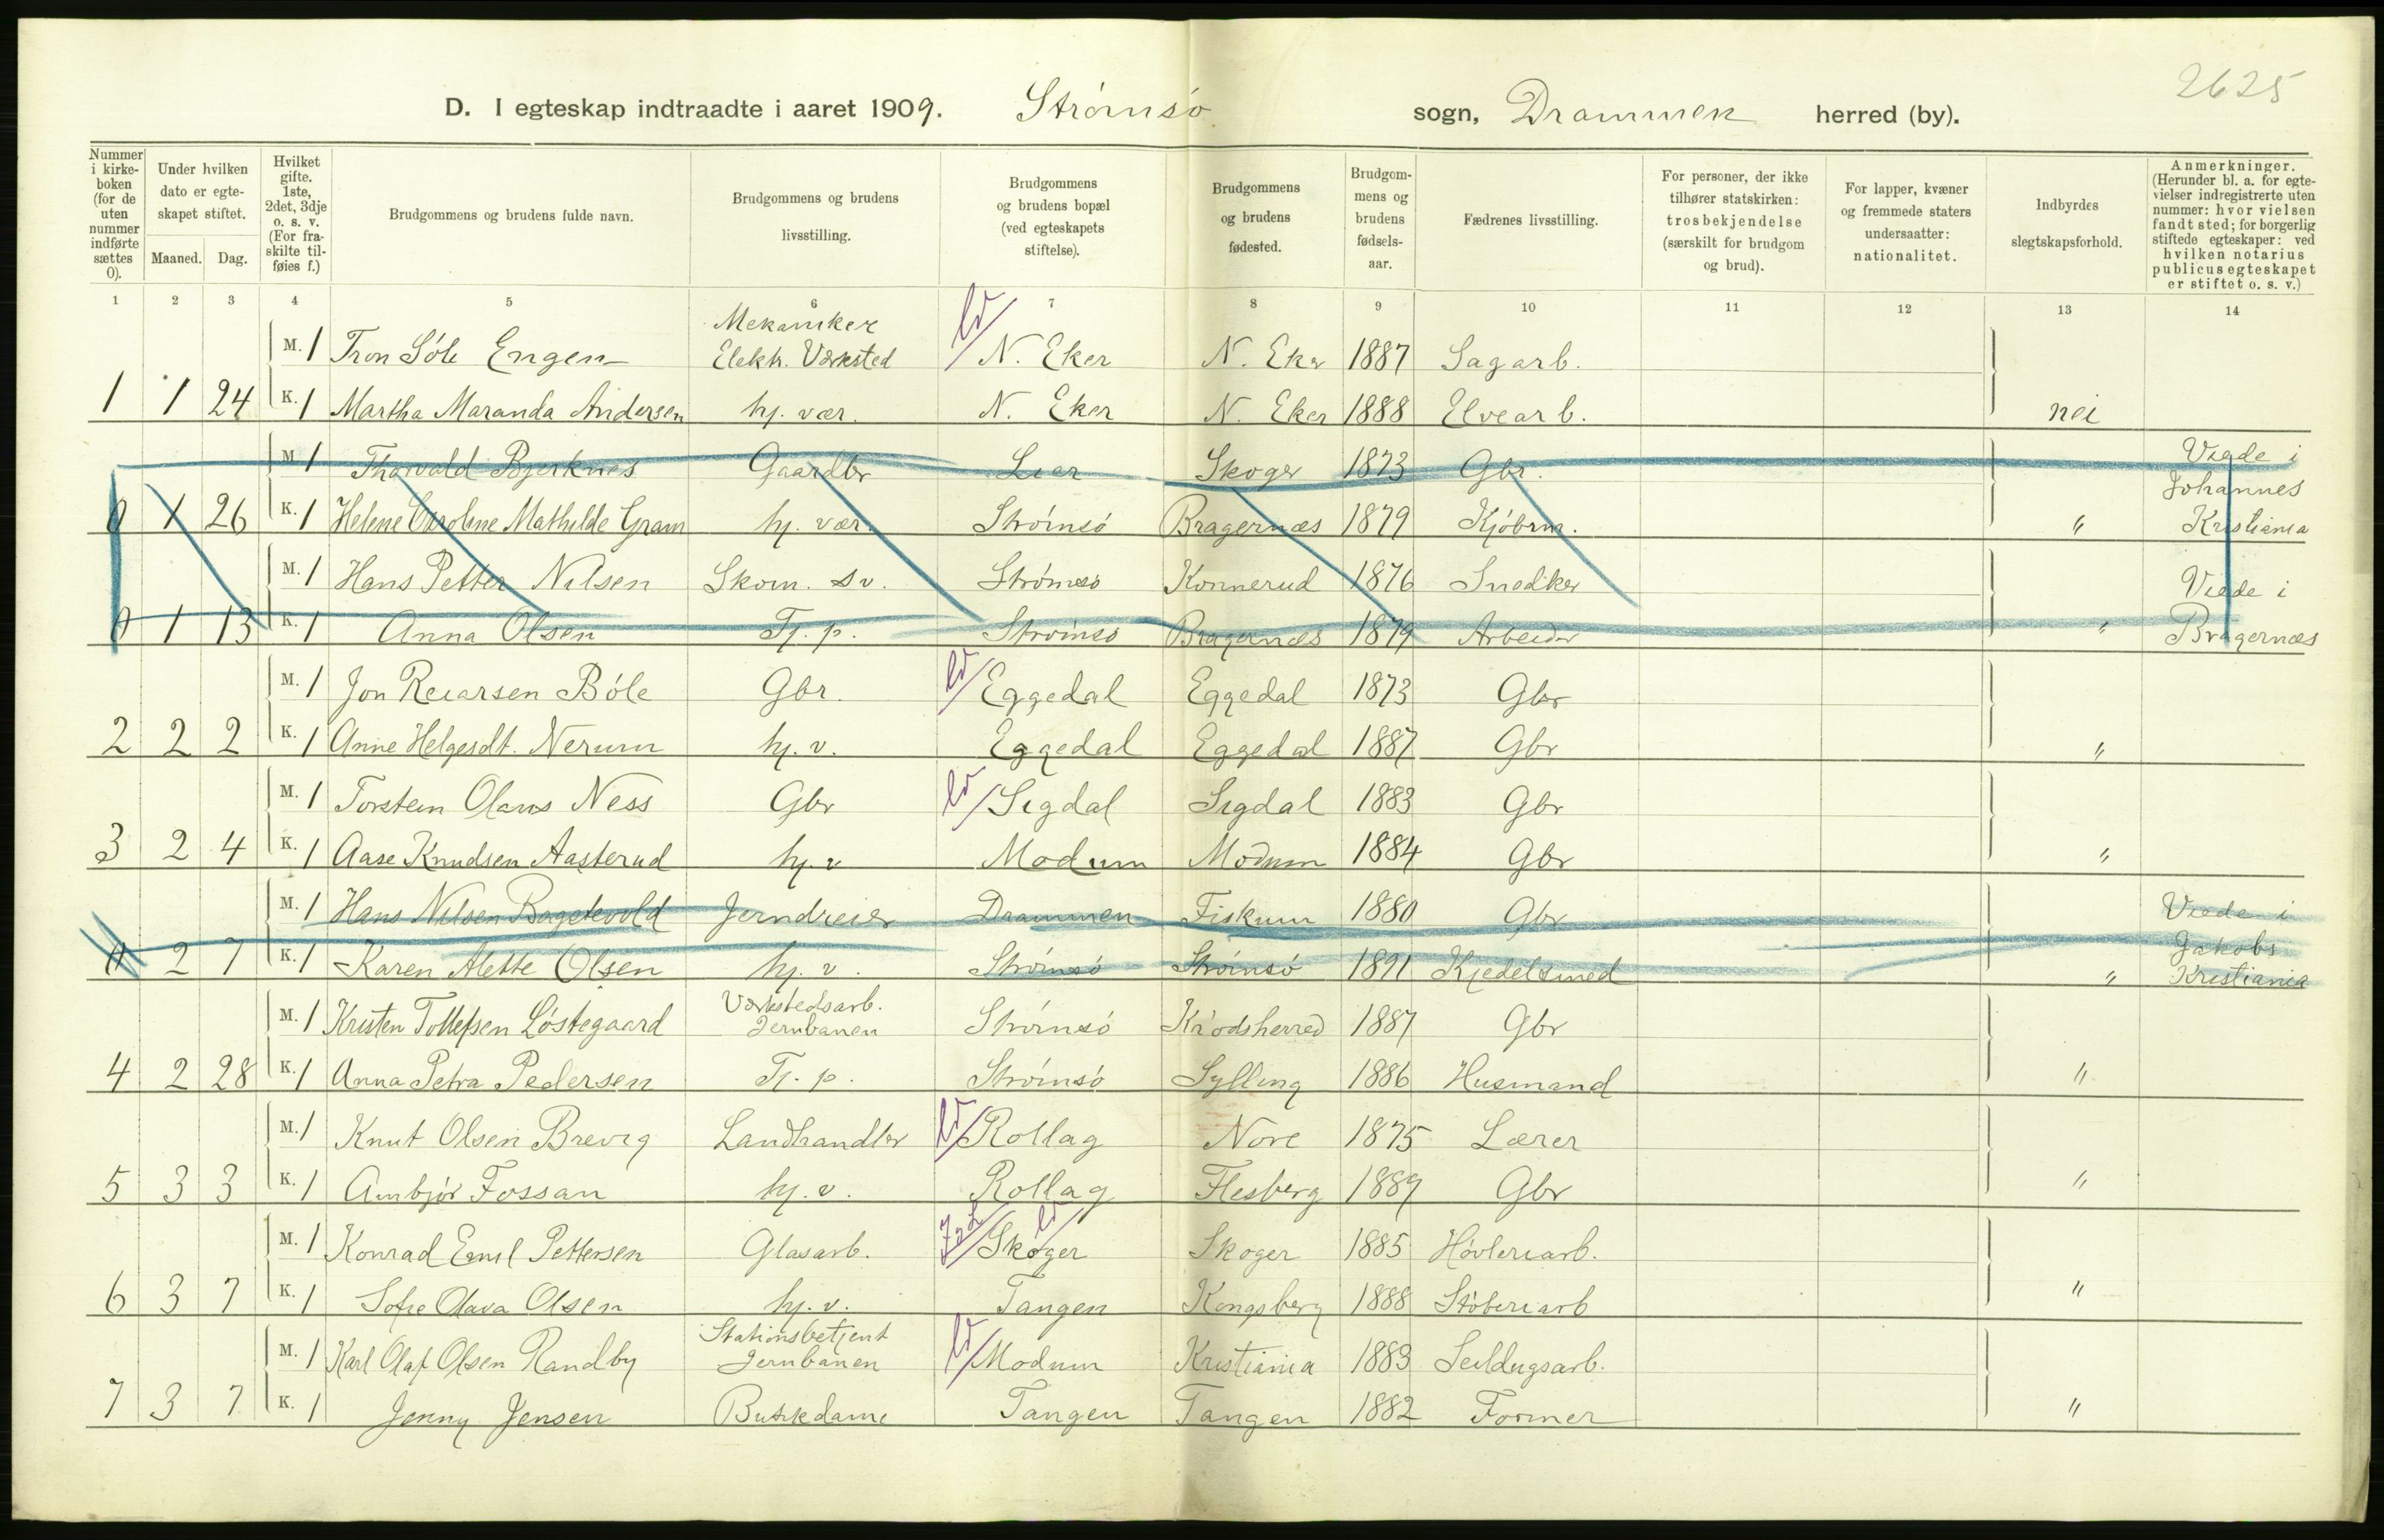 2625
D. I egteskap indtraadte i aaret 1909. Strømsø sogn, Drammen herred (by).
Nummer i kirke-boken (for de uten nummer indførte sættes 0). Under hvilken dato er egte-skapet stiftet. Maaned. Dag. Hvilket gifte. 1ste, 2det, 3dje o. s. v. (For fra-skilte til-føies f.) Brudgommens og brudens fulde navn. Brudgommens og brudens livsstilling. Brudgommens og brudens bopæl (ved egteskapets stiftelse). Brudgommens og brudens fødested. Brudgom-mens og brudens fødsels-aar. Fædrenes livsstilling. For personer, der ikke tilhører statskirken: trosbekjendelse (særskilt for brudgom og brud). For lapper, kvæner og fremmede staters undersaatter: nationalitet. Indbyrdes slegtskapsforhold. Anmerkninger. (Herunder bl. a. for egte-vielser indregistrerte uten nummer: hvor vielsen fandt sted; for borgerlig stiftede egteskaper: ved hvilken notarius publicus egteskapet er stiftet o. s. v.)
1 2 3 4 5 6 7 8 9 10 11 12 13 14
M. 1 Tron Søle Engen Mekaniker Elektr. Værksted ld N. Eker N. Eker 1887 Sagarb.
1 1 24 K. 1 Martha Maranda Andersen hj. vær. N. Eker N. Eker 1888 Elvearb. nei
M 1 Thorvald Bjerknes Gaardbr Lier Skoger 1873 Gbr. Viede i Johannes
0 1 26 K. 1 Helene Caroline Mathilde Gram hj. vær. Strømsø Bragernæs 1879 Kjøbm. " Kristiania
M. 1 Hans Petter Nilsen Skom. sv. Strømsø Konnerud 1876 Snediker Viede i
0 1 13 K. 1 Anna Olsen Tj. p. Strømsø Bragernæs 1879 Arbeider " Bragernæs
M. 1 Jon Reiarsen Bøle Gbr. ld Eggedal Eggedal 1873 Gbr
2 2 2 K. 1 Anne Helgesdt. Nerum hj. v. Eggedal Eggedal 1887 Gbr "
M. 1 Torstein Olans Ness Gbr ld Sigdal Sigdal 1883 Gbr
3 2 4 K. 1 Aase Knudsen Aasterud hj. v Modum Modum 1884 Gbr "
M. 1 Hans Nilsen Jerndreier Drammen Fiskum 1880 Gbr Viede i
0 2 7 K. 1 Karen Alette Olsen hj. v. Strømsø Strømsø 1891 Kjedelsmed " Jakobs Kristiania
M. 1 Kristen Tollefsen Løstegaard Værkstedsarb. Jernbanen Strømsø Krødsherred 1887 Gbr
4 2 28 K. 1 Anna Petra Pedersen Tj. p. Strømsø Sylling 1886 Husmand "
M. 1 Knut Olsen Brevig Landhandler ld Rollag Nore 1875 Lærer
5 3 3 K. 1 Ambjør Fossan hj. v. Rollag Flesberg 1889 Gbr "
M. 1 Konrad Emil Pettersen Glasarb. ld Skoger Skoger 1885 Høvleriarb.
6 3 7 K. 1 Sofie Olava Olsen hj. v. Tangen Kongsberg 1888 Støberiarb "
M. 1 Karl Olaf Olsen Randby Stationsbetjent Jernbanen ld Modum Kristiania 1883 Seildugsarb.
7 3 7 K. 1 Jenny Jensen Butikdame Tangen Tangen 1882 Former "